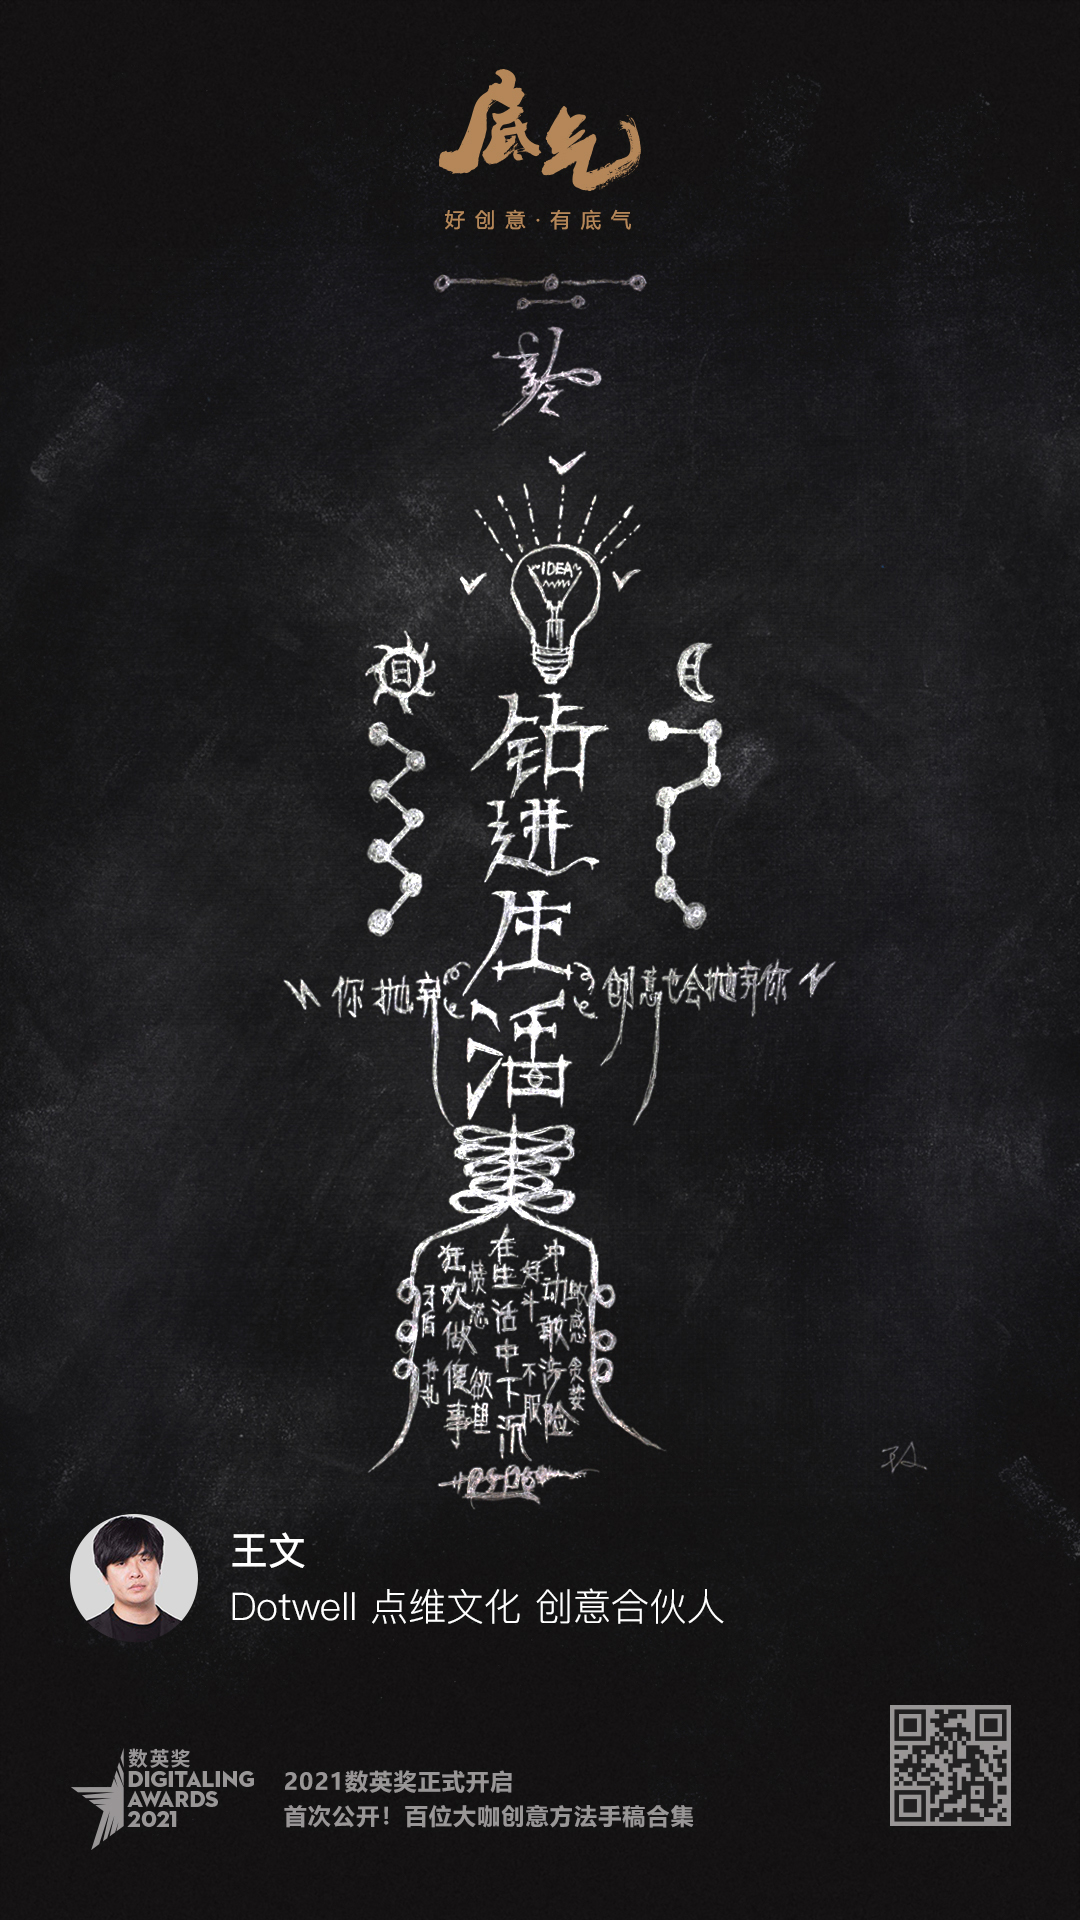 底气
好创意·有底气
IDEA
日
月
钻进生活里
你抛弃
创意也会抛弃你
冲动敢涉险
好斗 不服
在生活中下沉
愤怒 欲望
狂欢做傻事
敏感 贪婪
矛盾 挣扎
王文
Dotwell 点维文化 创意合伙人
数英奖
DIGITALING
AWARDS
2021
2021数英奖正式开启
首次公开！百位大咖创意方法手稿合集